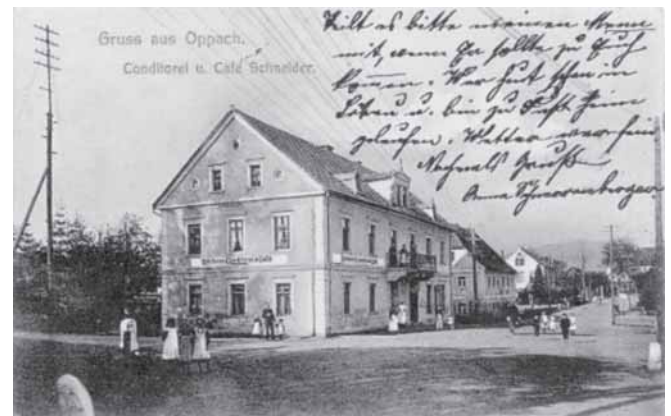 Gruss aus Oppach.
Conditorei u. Café Schneider.
Teilt es bitte meinen Mann
mit, wenn Er sollte zu Euch
kommen. War heut schon in
Löbau u. bin zu Fuß heim
gelaufen. Wetter war fein
Nochmals Gruß
Anna Schmorrenberger